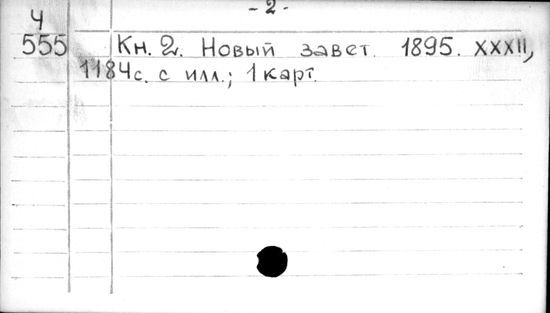 - 2 -
Ч
555 Кн. 2. Новый завет. 1895. XXXII,
1184с. с илл.; 1 карт.